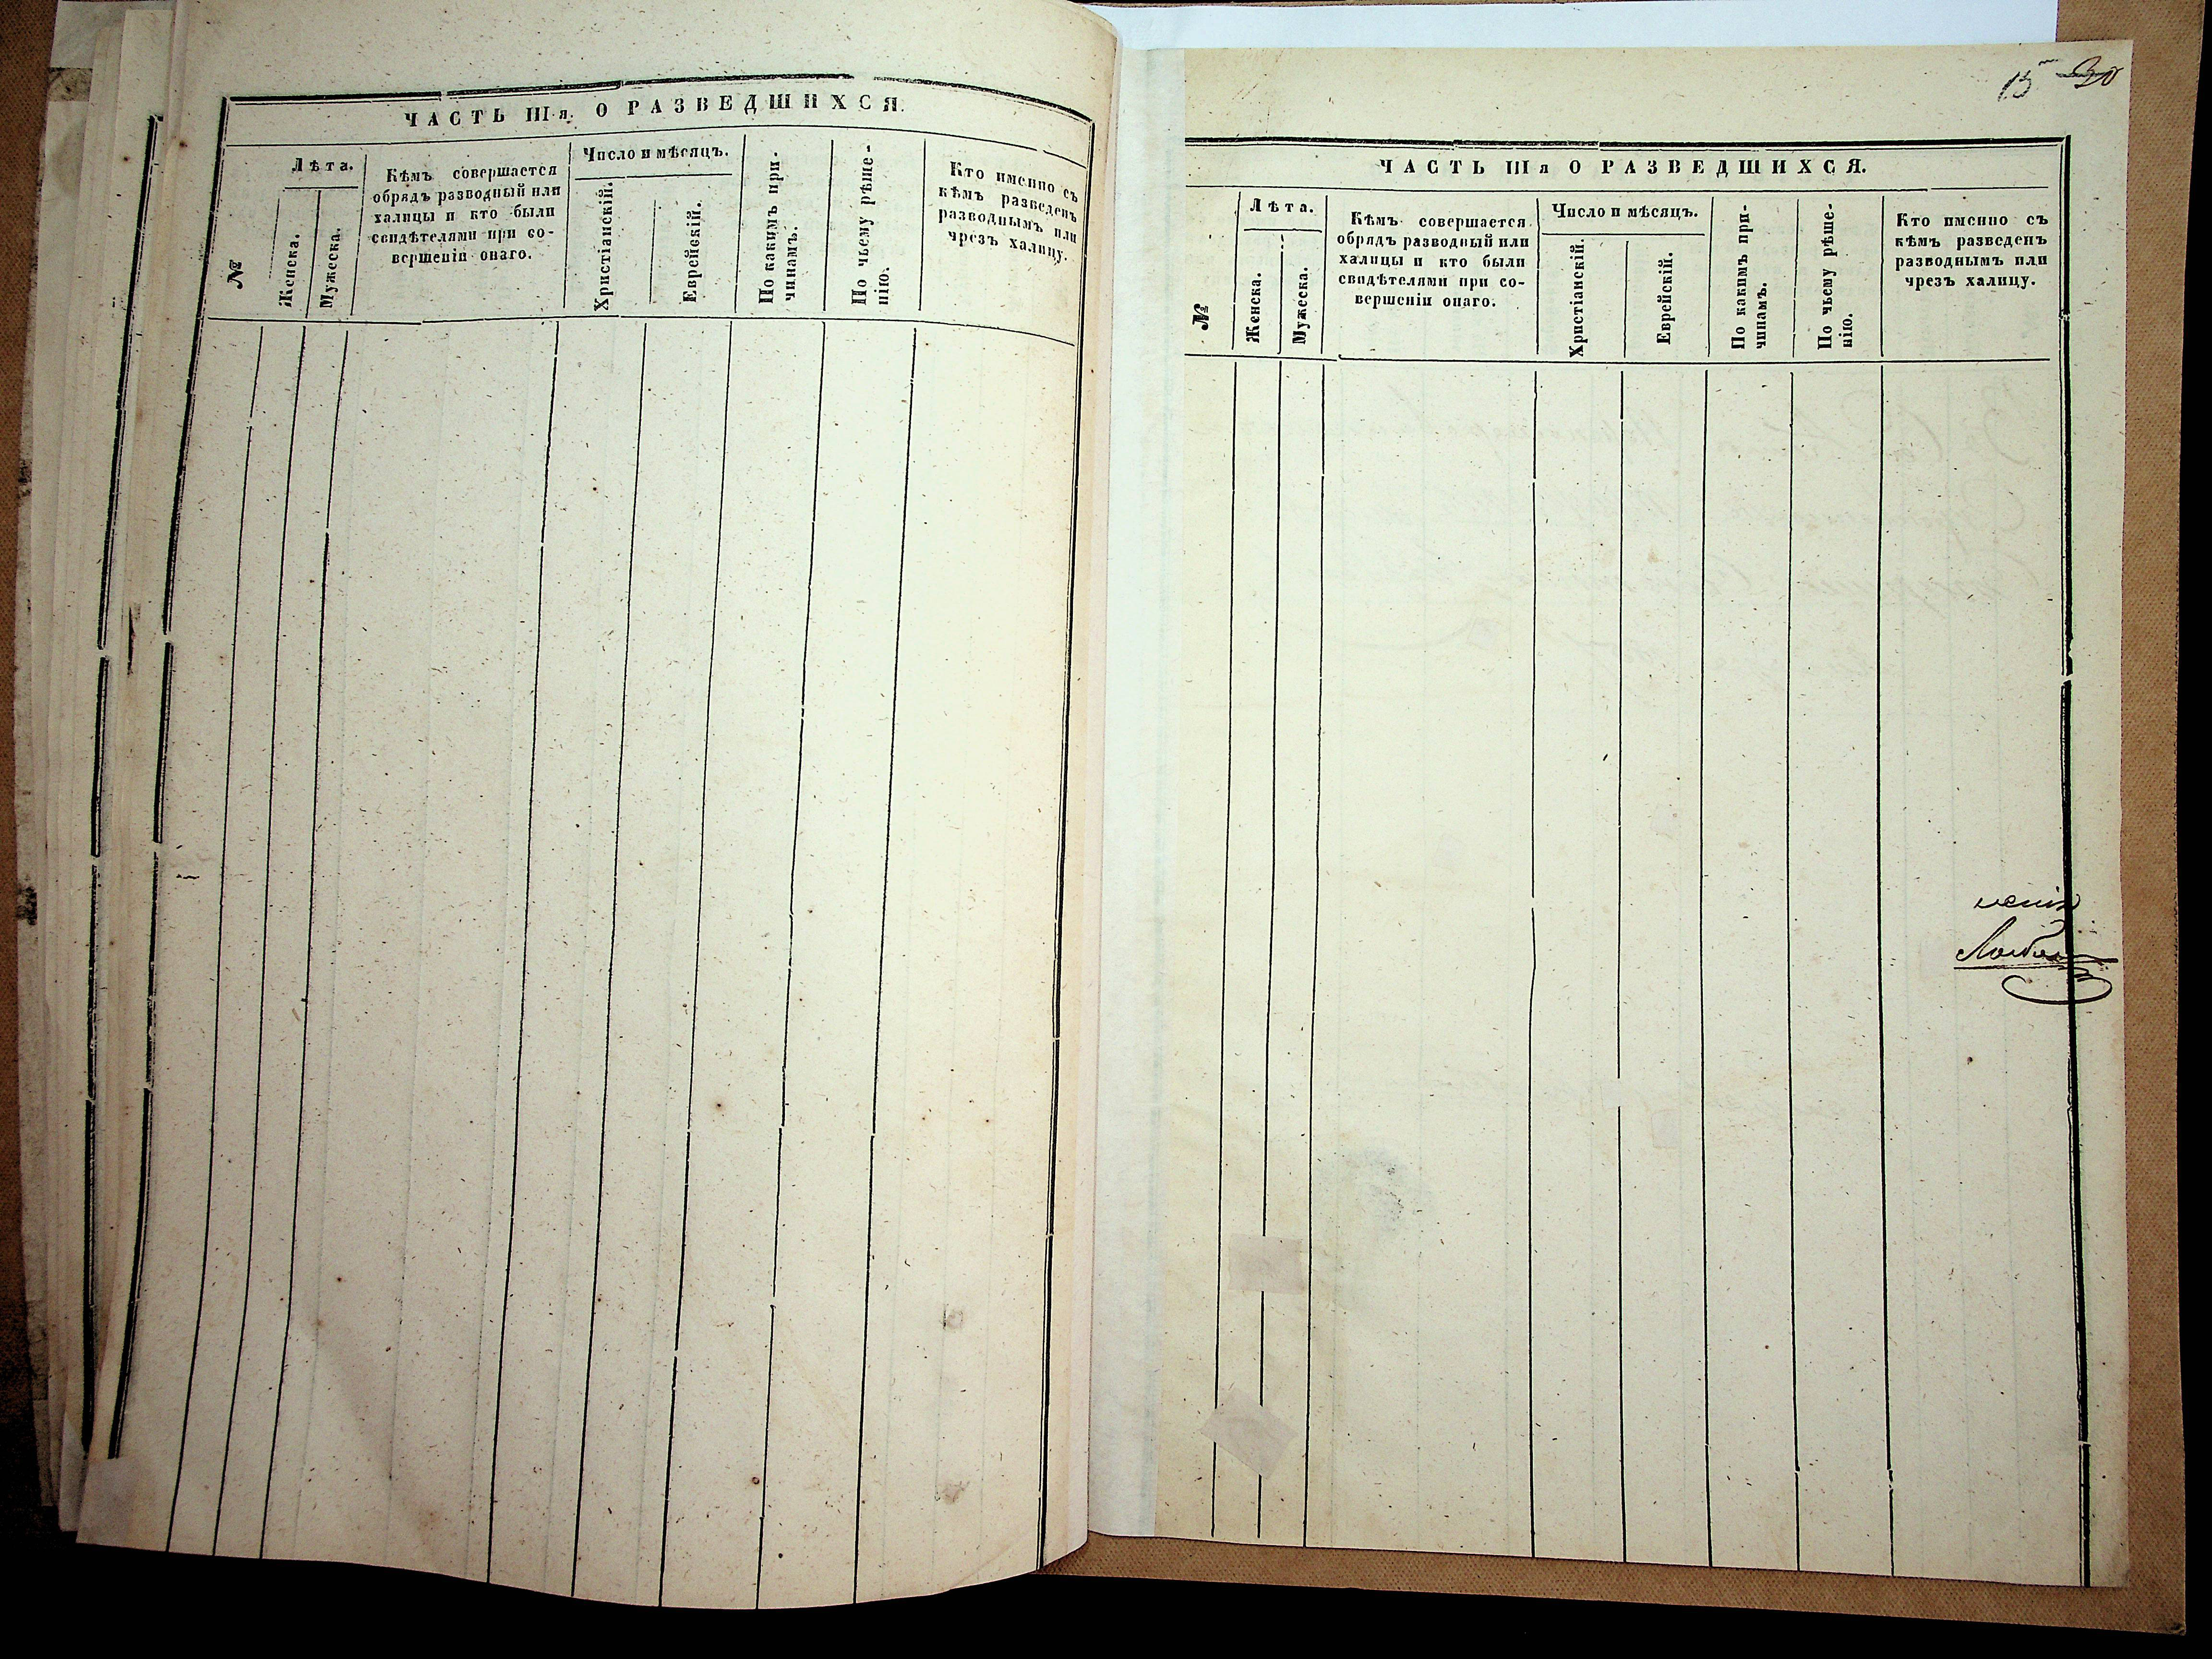 ЧАСТЬ III я. О РАЗВЕДШИХСЯ.
№
Лѣта.
Женска.
Мужеска.
Кѣмъ совершается
обрядъ разводный или
халицы и кто были
свидѣтелями при со-
вершеніи онаго.
Число и мѣсяцъ.
Христіанскій.
Еврейскій.
По какимъ при-
чинамъ.
По чьему рѣше-
нію.
Кто именно съ
кѣмъ разведенъ
разводнымъ или
чрезъ халицу.
15 30
ЧАСТЬ III я О РАЗВЕДШИХСЯ.
№
Лѣта.
Женска.
Мужеска.
Кѣмъ совершается
обрядъ разводный или
халицы и кто были
свидѣтелями при со-
вершеніи онаго.
Число и мѣсяцъ.
Христіанскій.
Еврейскій.
По какимъ при-
чинамъ.
По чьему рѣше-
нію.
Кто именно съ
кѣмъ разведенъ
разводнымъ или
чрезъ халицу.